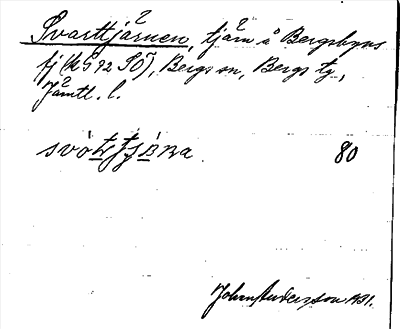 Svarttjärnen, tjärn å Bergsbyns
fj (KS 72 SÖ), Bergs sn, Bergs tg,
Jämtl. l.
80
John Andersson 1931.